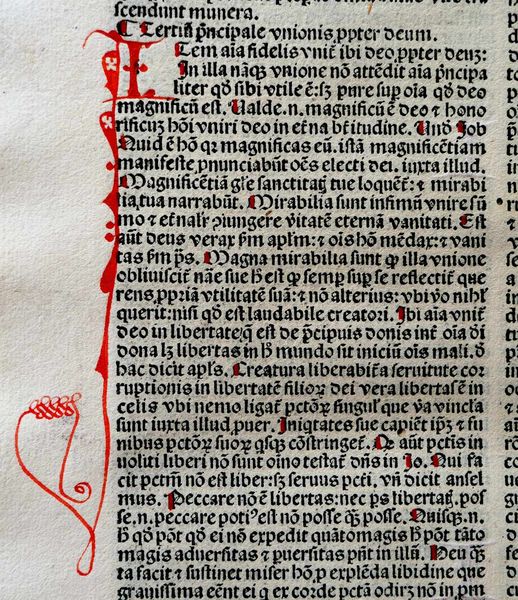 scendunt munera.
¶ Tertiũ p̃ncipale vnionis, ꝓpter deum.
ITem aĩa fidelis vnit̃ ibi deo, ꝓpter deuʒ:
In illa nãq̃ vnione nõ attẽdit aĩa p̃ncipa
liter qð sibi vtile ẽ: sʒ pure sup oĩa qð deo
magnificũ est. Ualde .n. magnificũ ẽ deo ⁊ hono
rificuʒ hõi vniri deo in et̃na bt̃itudine. Unð Job
Quid ẽ hõ qꝛ magnificas eũ. istã magnificẽtiam
manifeste ꝓnunciabũt oẽs electi dei. iuxta illud.
Magnificẽtiã gl̃e sanctitatʒ tue loquẽt̃: ⁊ mirabi
lia tua narrabũt. Mirabilia sunt infimũ vnire sũ
mo ⁊ et̃nalr̃ ↄiungere v̾itatẽ eternã vanitati. Est
aũt deus verax ꝑm apl̃m: ⁊ oĩs hõ mẽdax: ⁊ vani
tas ꝑm p̃s. Magna mirabilia sunt ꝙ illa vnione
obliuiscit̃ nãe sue hʒ est ꝙ semꝑ sup se reflectit̃ que
rens ꝓpriã vtilitatẽ suã: ⁊ nõ alterius: vbi v̾o nihl̃
querit: nisi qð est laudabile creatori. Ibi aĩa vnit̃
deo in libertate: q̃ est de p̃cipuis donis int̾ oĩa ði
dona lʒ libertas in hʒ mundo sit iniciũ oĩs mali. ð
hac dicit apl̃s. Creatura liberabit̃ a seruitute cor
ruptionis in libertatẽ filioꝝ dei vera libertas ẽ in
celis vbi nemo ligat̃ pctõꝝ singul̃ que v̾a vincla
sunt iuxta illud, puer. Iniqtates sue capiẽt ip̃ʒ ⁊ fu
nibus pctõꝝ suoꝝ qsqʒ cõstringet̃. Qꝛ aũt pctis in
uoliti liberi nõ sunt oĩno testat̃ dñs in Jo. Qui fa
cit pctm̃ nõ est liber: sʒ seruus pcti. vñ dicit ansel
mus. Peccare nõ ẽ libertas: nec ꝑs libertatʒ. pos
se .n. peccare poti⁹ est nõ posse qʒ posse. Quisqʒ .n.
hʒ qð põt qð ei nõ expedit quãtomagis hʒ põt tãto
magis aduersitas ⁊ ꝑuersitas pñt in illũ. Heu qʒ̃
ta facit ⁊ sustinet miser hõ, p explẽda libidine que
grauissima eẽnt ei q̃ ex corde pctã odirʒ nõ in ꝓm